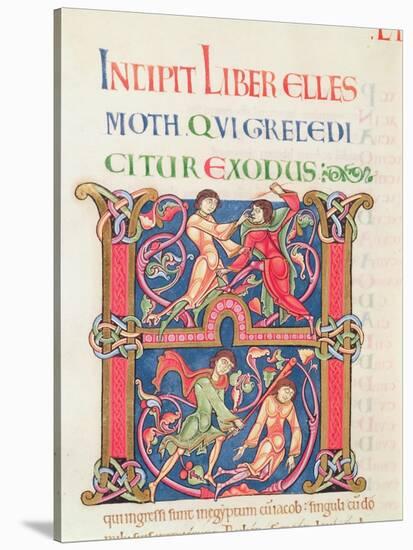 ET
INCIPIT LIBER ELLES
MOTH. QVI GRECE DI
CITUR EXODUS:
H
qui ingressi sunt in egyptum cū iacob: singuli cū do